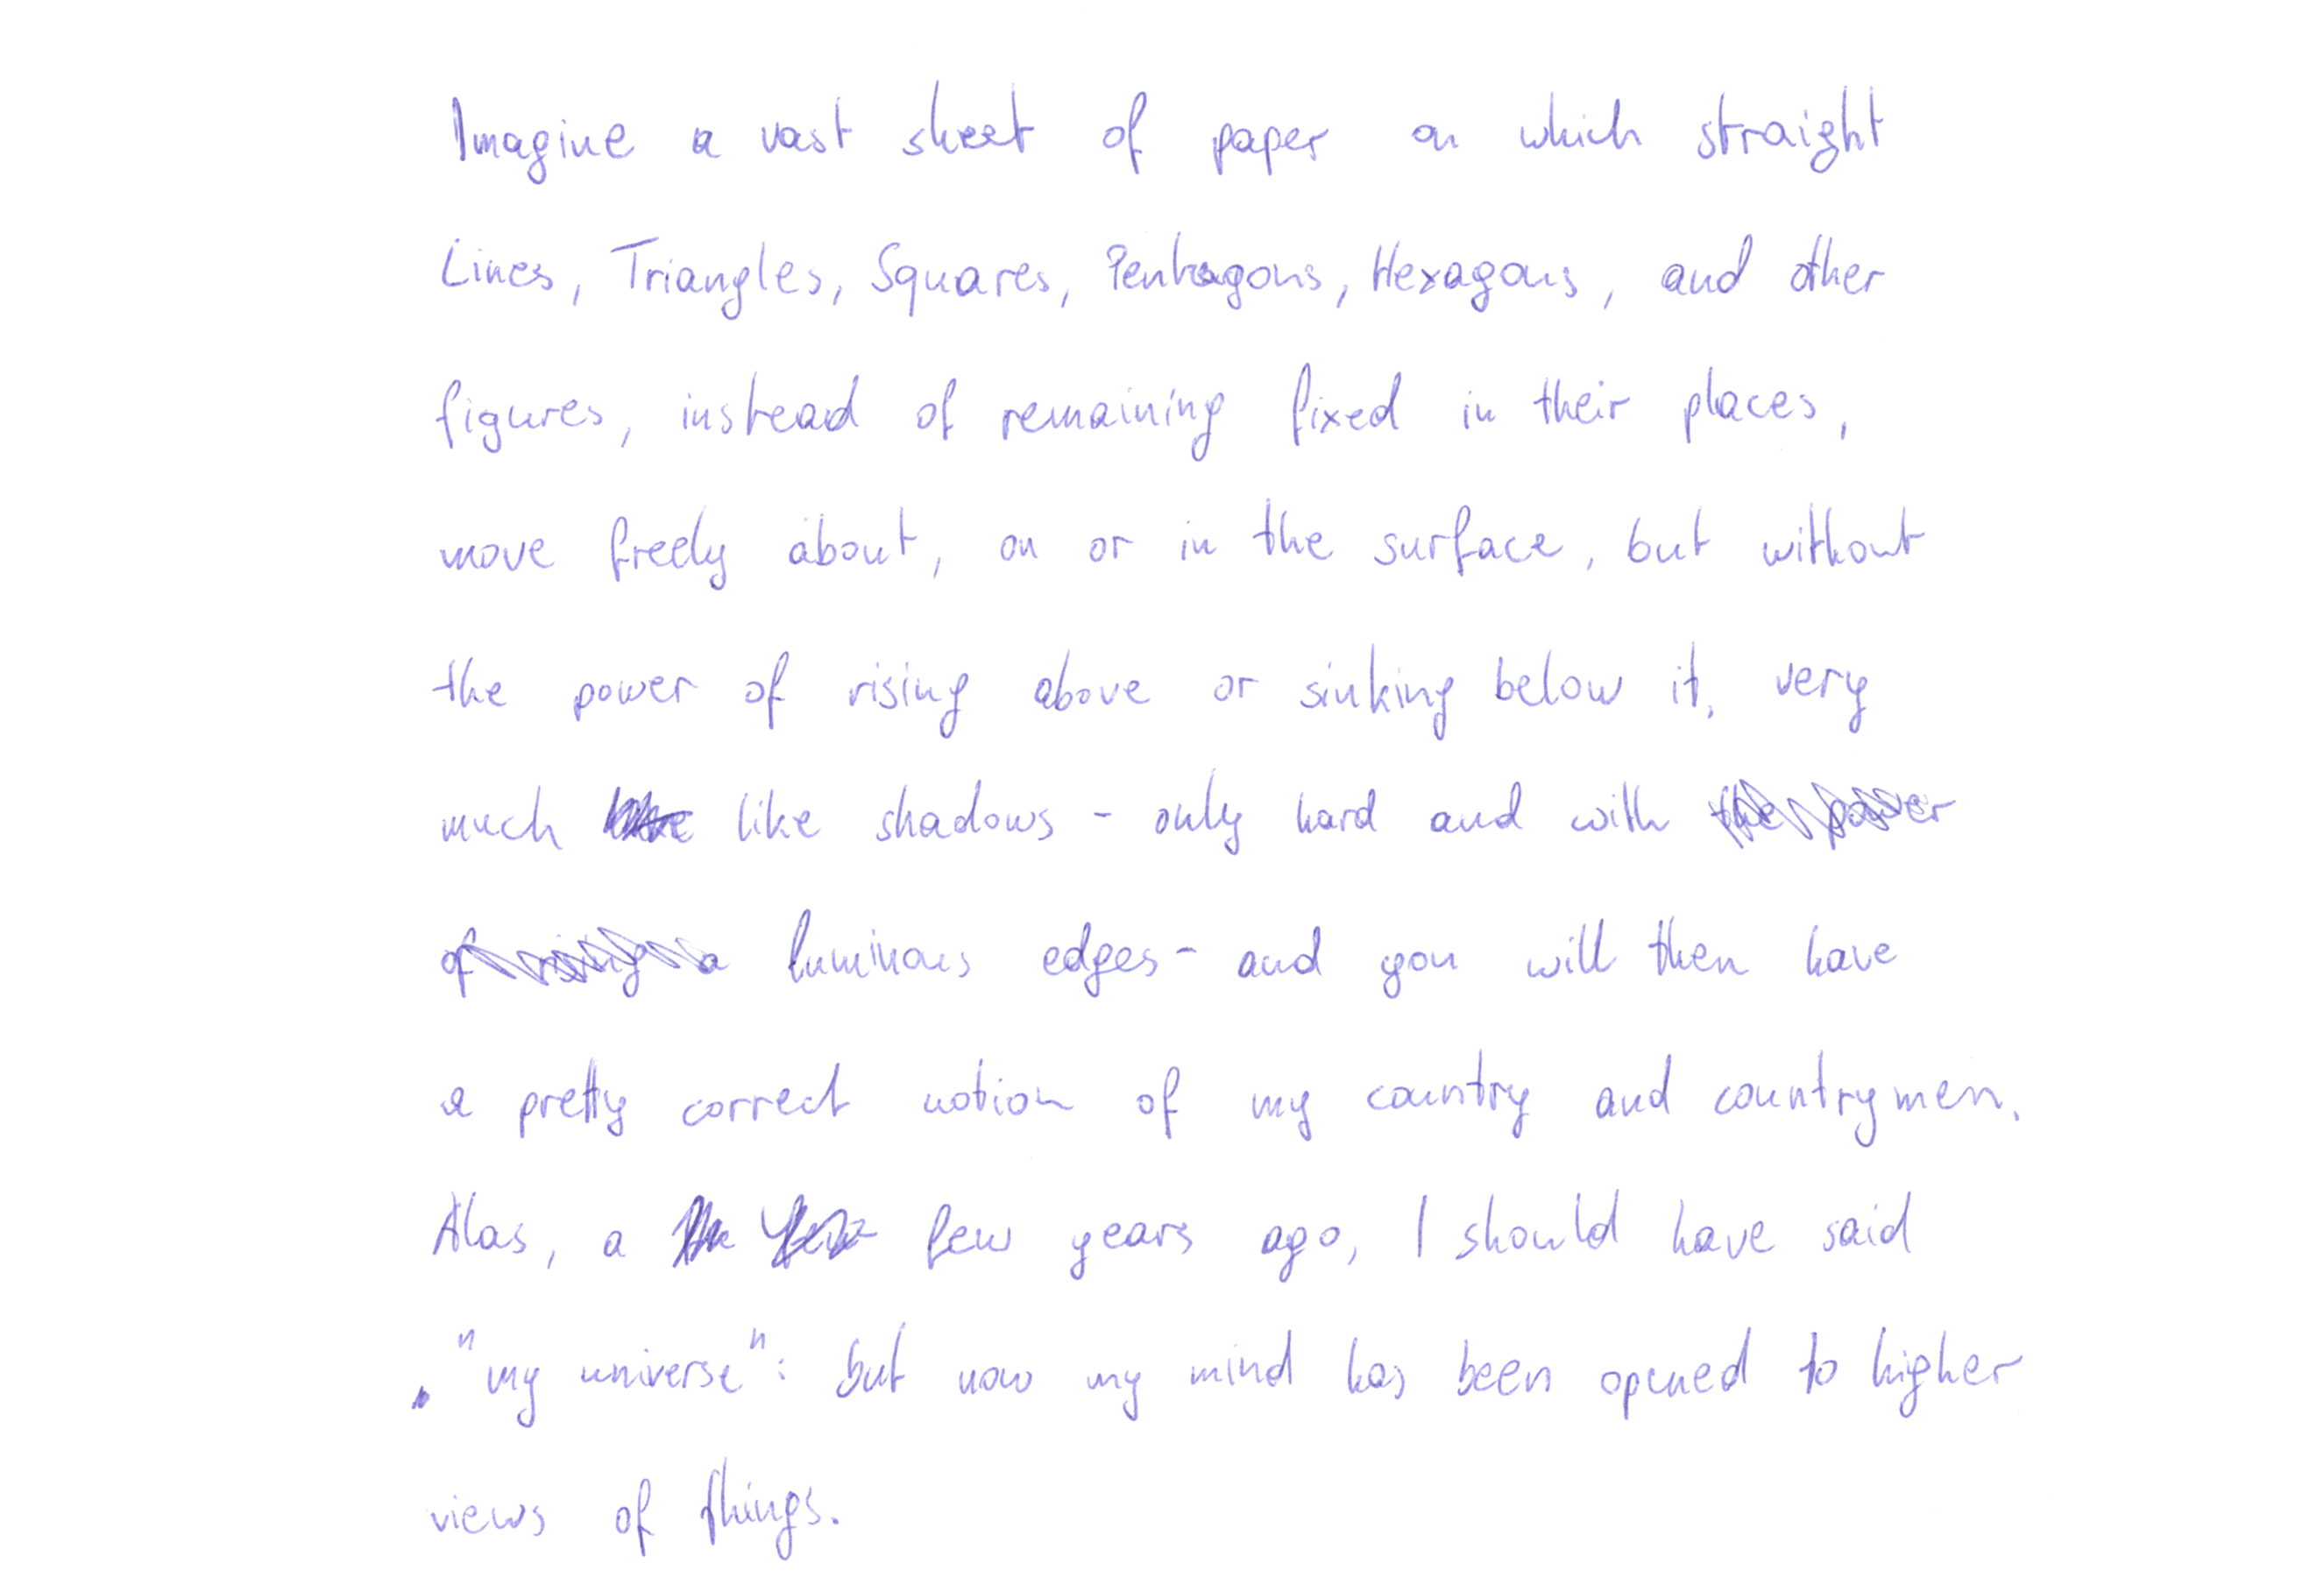 Imagine a vast sheet of paper on which straight
Lines, Triangles, Squares, Pentagons, Hexagons, and other
figures, instead of remaining fixed in their places,
move freely about, on or in the surface, but without
the power of rising above or sinking below it, very
much like shadows - only hard and with the power
of rising a luminous edges - and you will then have
a pretty correct notion of my country and countrymen.
Alas, a few years ago, I should have said
"my universe": but now my mind has been opened to higher
views of things.